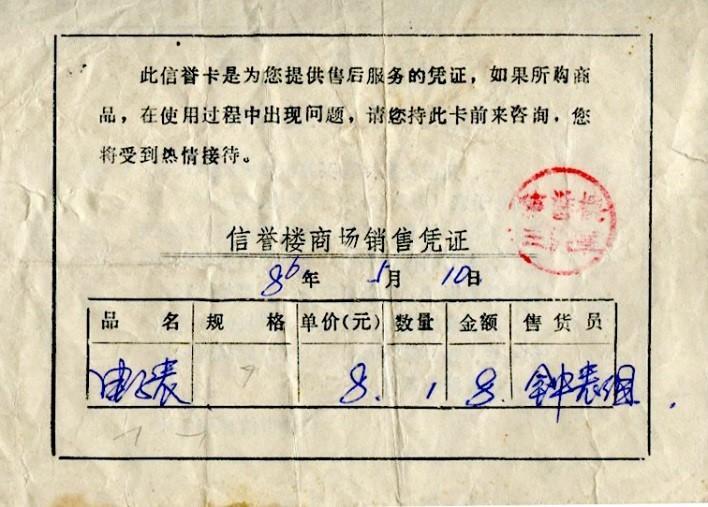 此信誉卡是为您提供售后服务的凭证，如果所购商
品，在使用过程中出现问题，请您持此卡前来咨询，您
将受到热情接待。
信誉楼
信誉楼商场销售凭证
86年 5月 10日
品名 规格 单价(元) 数量 金额 售货员
电子表 8. 1 8. 钟表组